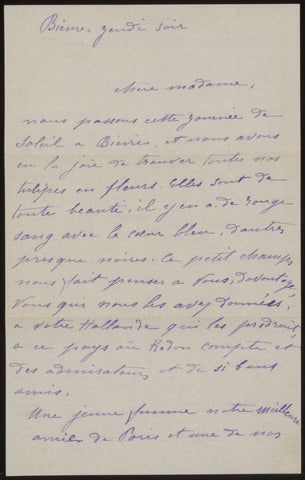 Bièvres jeudi soir
chère madame,
nous passons cette journée de
soleil a Bièvres, et nous avons
eu la joie de trouver toutes nos
tulipes en fleurs. Elles sont de
toute beauté, il y en a de rouge
sang avec le cœur bleu, d'autres
presque noires. Ce petit champs
nous fait penser a Vous, davantage,
Vous qui nous les avez données,
a votre Hollande qui les produit,
a ce pays ou Redon compte et
des admirateurs et de si bons
amis.
Une jeune femme notre meilleure
amie de Paris et une de nos